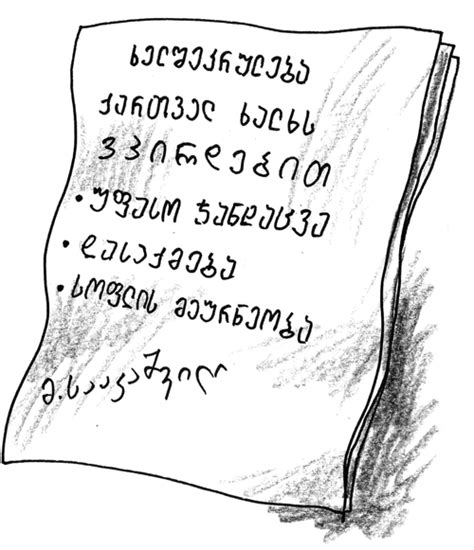 ხელშეკრულება
ქართველ ხალხს
ვპირდებით
• უფასო ჯანდაცვა
• დასაქმება
• სოფლის მეურნეობა
მ. სააკაშვილი